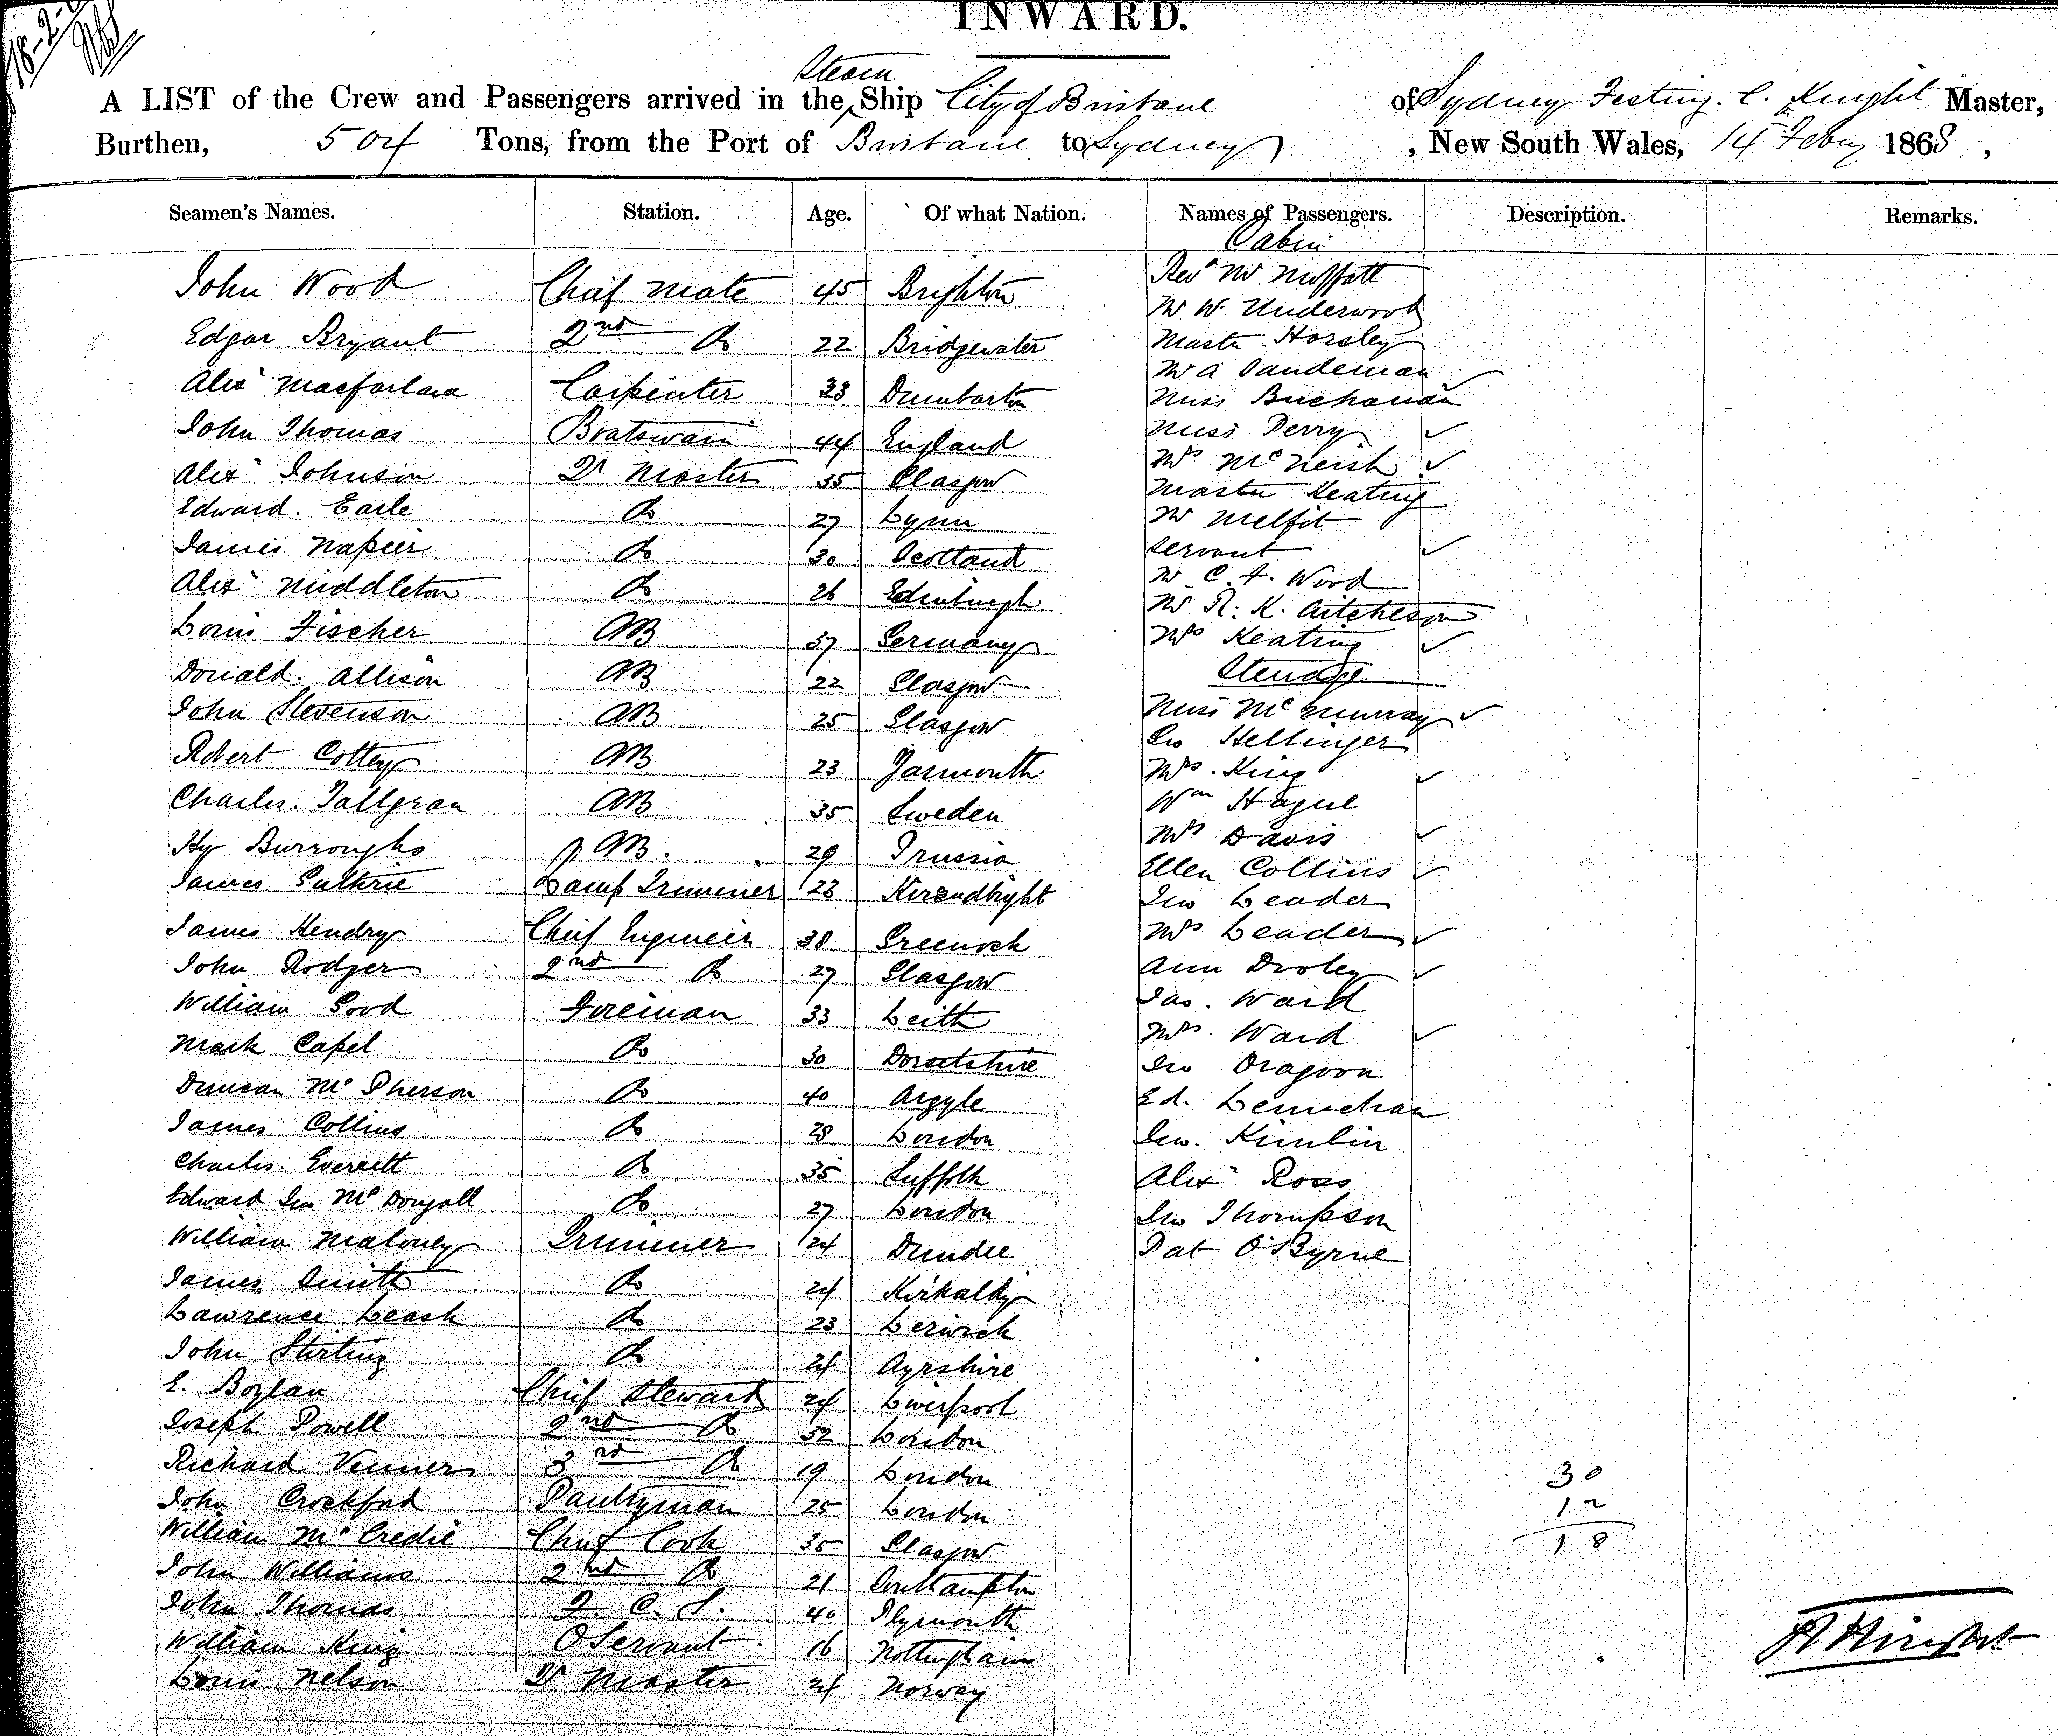 18-2-
INWARD.
Steam
A LIST of the Crew and Passengers arrived in the Ship City of Brisbane of Sydney Festing. C. Knight Master,
Burthen, 504 Tons, from the Port of Brisbane to Sydney, New South Wales, 14 Feby 1868,
Seamen's Names. Station. Age. Of what Nation. Names of Passengers. Description. Remarks.
Cabin
John Wood Chief Mate 45 Brighton Revd Mr Moffatt
Mr W Underwood
Edgar Bryant 2nd Do 22 Bridgewater Master Horsley
Mr A Sandeman
Alexr Macfarlane Carpenter 33 Dumbarton Miss Buchanan
John Thomas Boatswain 44 England Miss Perry
Alexr Johnson Qr Master 35 Glasgow Mrs McNeish
Edward Earle Do 27 Lynn Master Keating
Mr Melfit
James Napier Do 30 Scotland servant
Alexr Middleton Do 26 Edinburgh Mr C. F. Wood
Mr R. K. Aitcheson
Louis Fischer AB 37 Germany Mrs Keating
Donald Allison AB 22 Glasgow Steerage
John Stevenson AB 25 Glasgow Miss McMurray
Jno Hellinger
Robert Cottey AB 23 Yarmouth Mrs. King
Charles Tallgran AB 35 Sweden Wm Hague
Hy Burroughs AB. 29 Prussia Mrs Davis
Ellen Collins
James Guthrie Lamp Trimmer 23 Kircudbight Jno Leader
James Hendry Chief Engineer 38 Greenock Mrs Leader
John Rodger 2nd Do 27 Glasgow Ann Dooley
William Good Fireman 33 Leith Jas. Ward
Mark Capel Do 30 Dorsetshire Mrs. Ward
Jno Dragoon
Duncan McPherson Do 40 Argyle Ed. Lennehan
James Collins Do 28 London Jno. Kimlin
Charles Everett Do 35 Suffolk Alexr Ross
Edward Jno McDougall Do 27 London Jno Thompson
William Maloney Trimmer 24 Dundee Pat O'Byrne
James Smith Do 24 Kirkaldy
Lawrence Leask Do 23 Lerwick
John Stirling Do 24 Ayrshire
E. Boylan Chief Steward 24 Liverpool
Joseph Powell 2nd Do 52 London
Richard Venner 3rd Do 19 London 30
John Crockford Pantryman 25 London 12
William McCredie Chief Cook 35 Glasgow 18
John Williams 2nd Do 21 Southampton
John Thomas 40 Plymouth
William King O Servant 16 Nottingham
Louis Nelson Qr Master 24 Norway